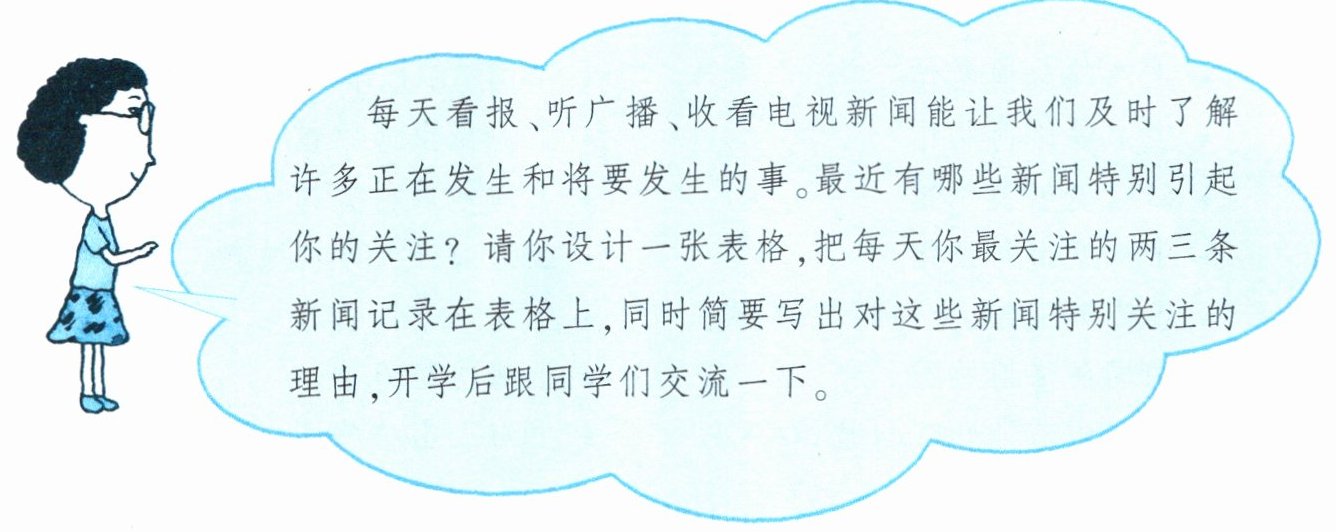 每天看报、听广播、收看电视新闻能让我们及时了解
许多正在发生和将要发生的事。最近有哪些新闻特别引起
你的关注？请你设计一张表格，把每天你最关注的两三条
新闻记录在表格上，同时简要写出对这些新闻特别关注的
理由，开学后跟同学们交流一下。